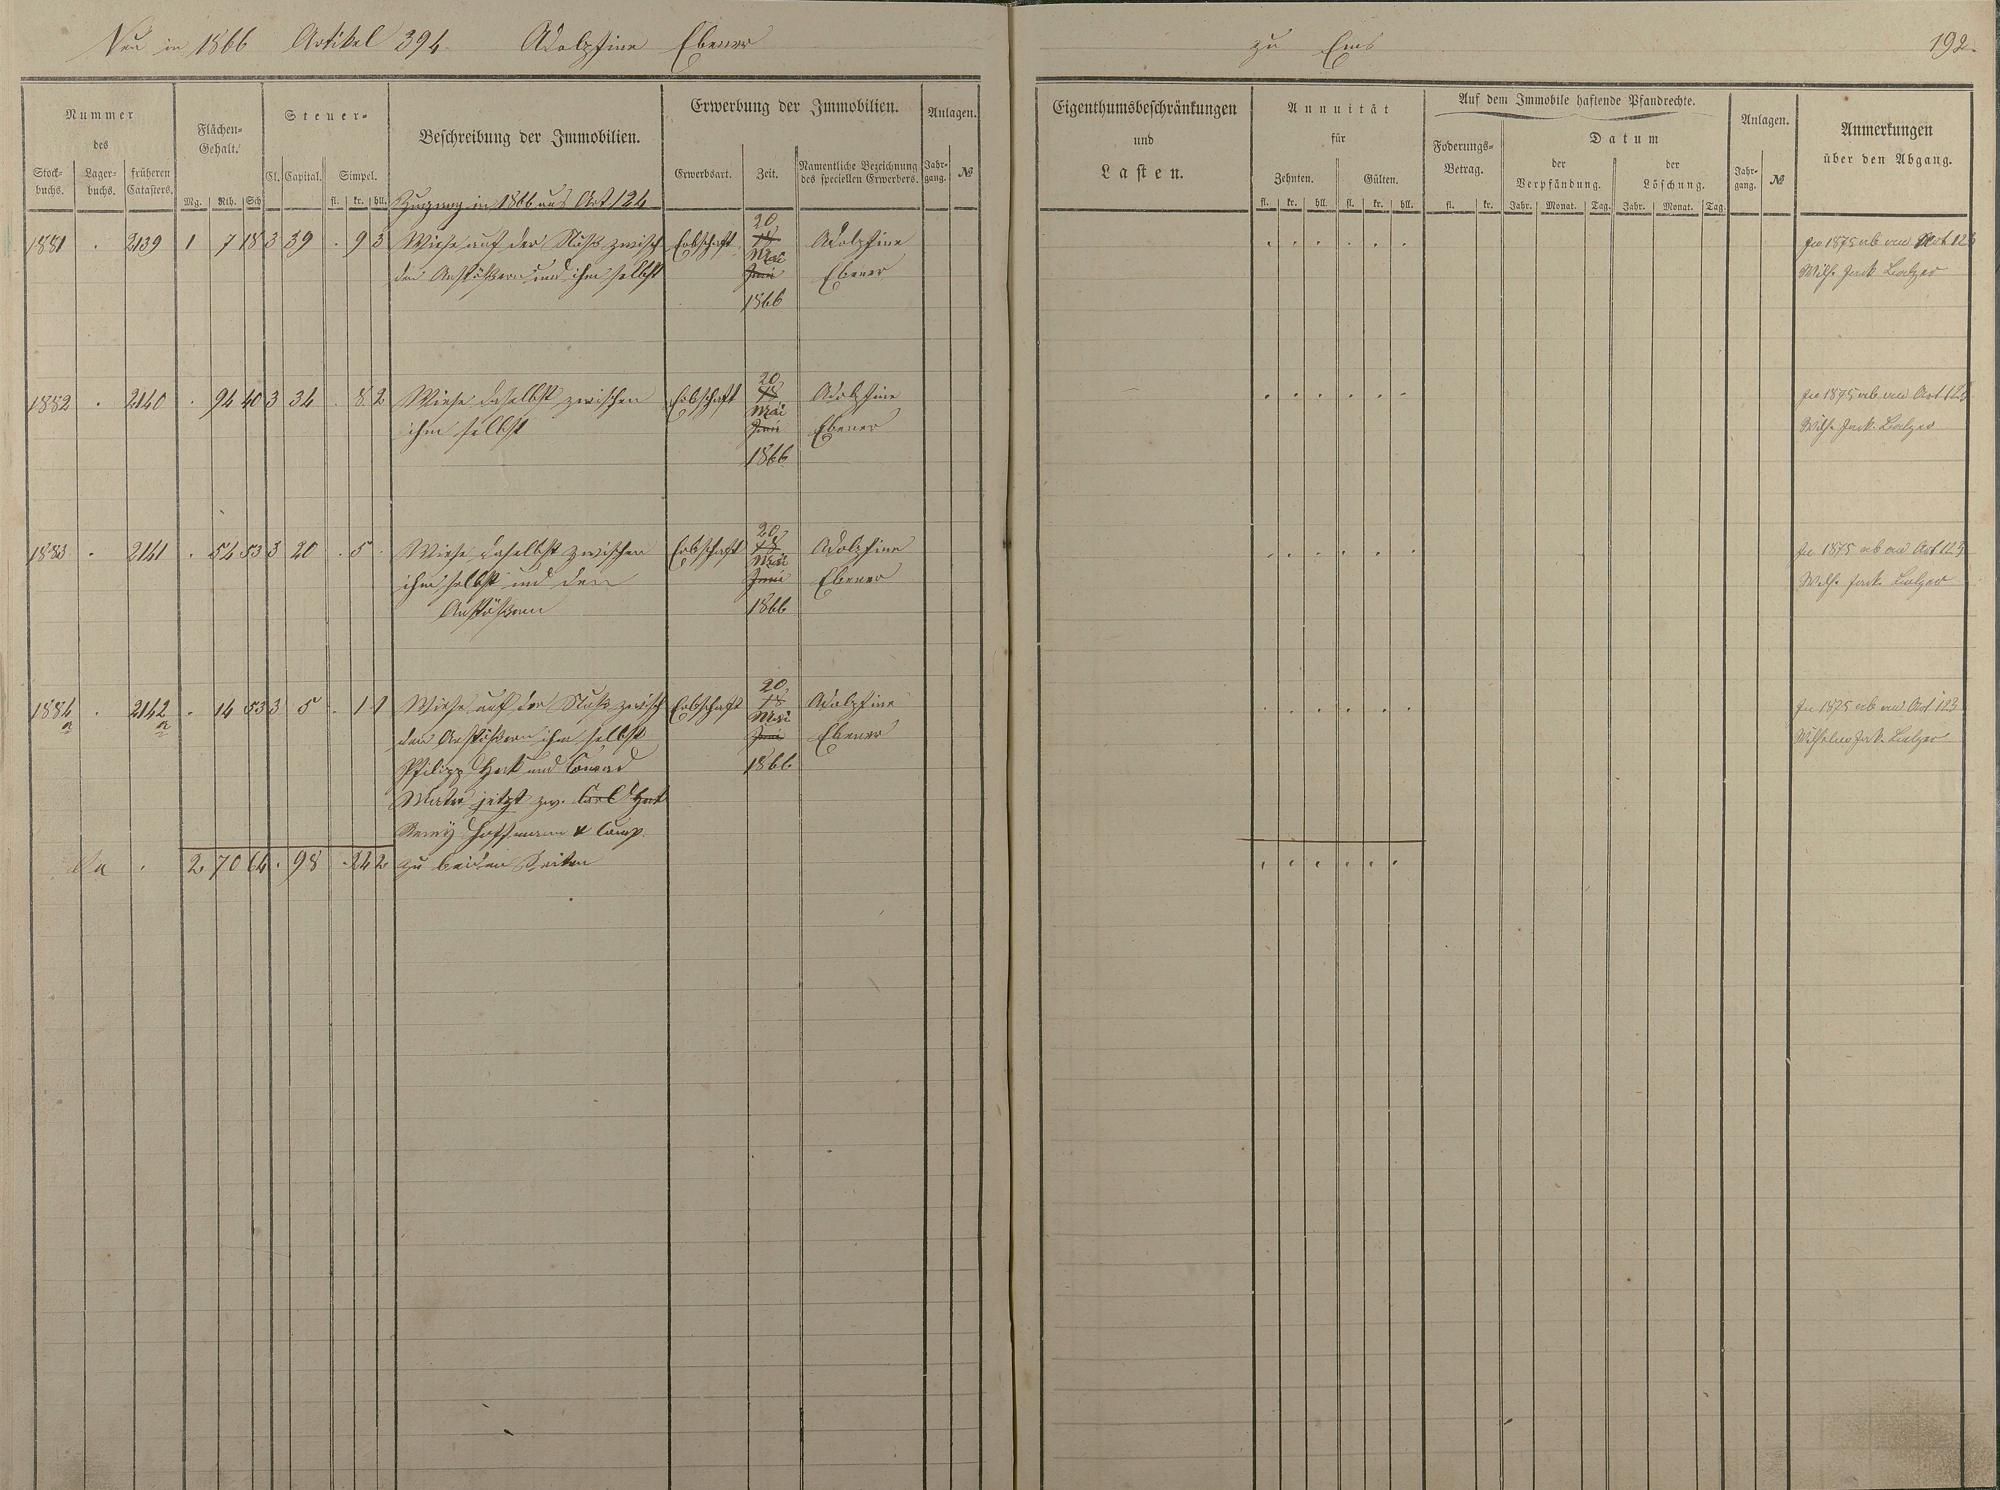 Neu in 1866 Artikel 394. Adolphine Ebener zu Ems 192.
Nummer
des
Stock-
buchs.
Lager-
buchs.
früheren
Catasters.
Flächen-
Gehalt.
Mg. Rth. Sch
Steuer-
Cl. Capital. Simpel.
fl. kr. hll.
Beschreibung der Immobilien.
Erwerbung der Immobilien.
Erwerbsart. Zeit.
Namentliche Bezeichnung
des speciellen Erwerbers.
Anlagen.
Jahr-
gang. №
Eigenthumsbeschränkungen
und
Lasten.
Annuität
für
Zehnten. Gülten.
fl. kr. hll. fl. kr. hll.
Auf dem Immobile haftende Pfandrechte.
Foderungs-
Betrag.
fl. kr.
Datum
der
Verpfändung.
der
Löschung.
Jahr. Monat. Tag. Jahr. Monat. Tag.
Anlagen.
Jahr-
gang. №
Anmerkungen
über den Abgang.
Zugang in 1866 aus Art 124
1881 . 2139 1 7 18 3 39 . 9 3 Wiese auf der zwisch Erbschaft 20 Adolphine In 1875 ab an Art 123
18
den Anstößern und ihm selbst Mai Ebener Wilh. Jack. Balzer
Juni
1866
1882 . 2140 . 94 40 3 34 . 8 2 Wiese daselbst zwischen Erbschaft 20 Adolphine In 1875 ab an Art 123
18
ihm selbst Mai Ebener Wilh. Jack. Balzer
Juni
1866
1883 . 2141 . 54 53 3 20 . 5 . Wiese daselbst zwischen Erbschaft 20 Adolphine In 1875 ab an Art 123
18
ihm selbst und den Mai Ebener Wilh. Jack. Balzer
Juni
Anstößern 1866
1884 . 2142 . 14 53 3 5 . 1 1 Wiese auf der zwisch Erbschaft 20 Adolphine In 1875 ab an Art 123
a a 18
den Anstößern ihm selbst Mai Ebener Wilhelm Jak. Balzer
Juni
Philipp und Conrad 1866
jetzt zw. Carl
Remy Hoffmann & Comp.
2 70 64 . 98 . 24 2 zu beiden Seiten